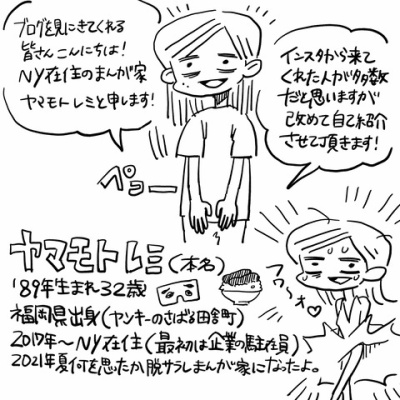 ブログを見にきてくれる
皆さんこんにちは!
NY在住のまんが家
ヤマモトレミと申します!
インスタから来て
くれた人が多数
だと思いますが
改めて自己紹介
させて頂きます!
ペコー
ヤマモトレミ(本名)
'89年生まれ32歳
福岡県出身(ヤンキーのさばる田舎町)
2017年〜NY在住(最初は企業の駐在員)
2021年夏何を思ったか脱サラしまんが家になったよ。